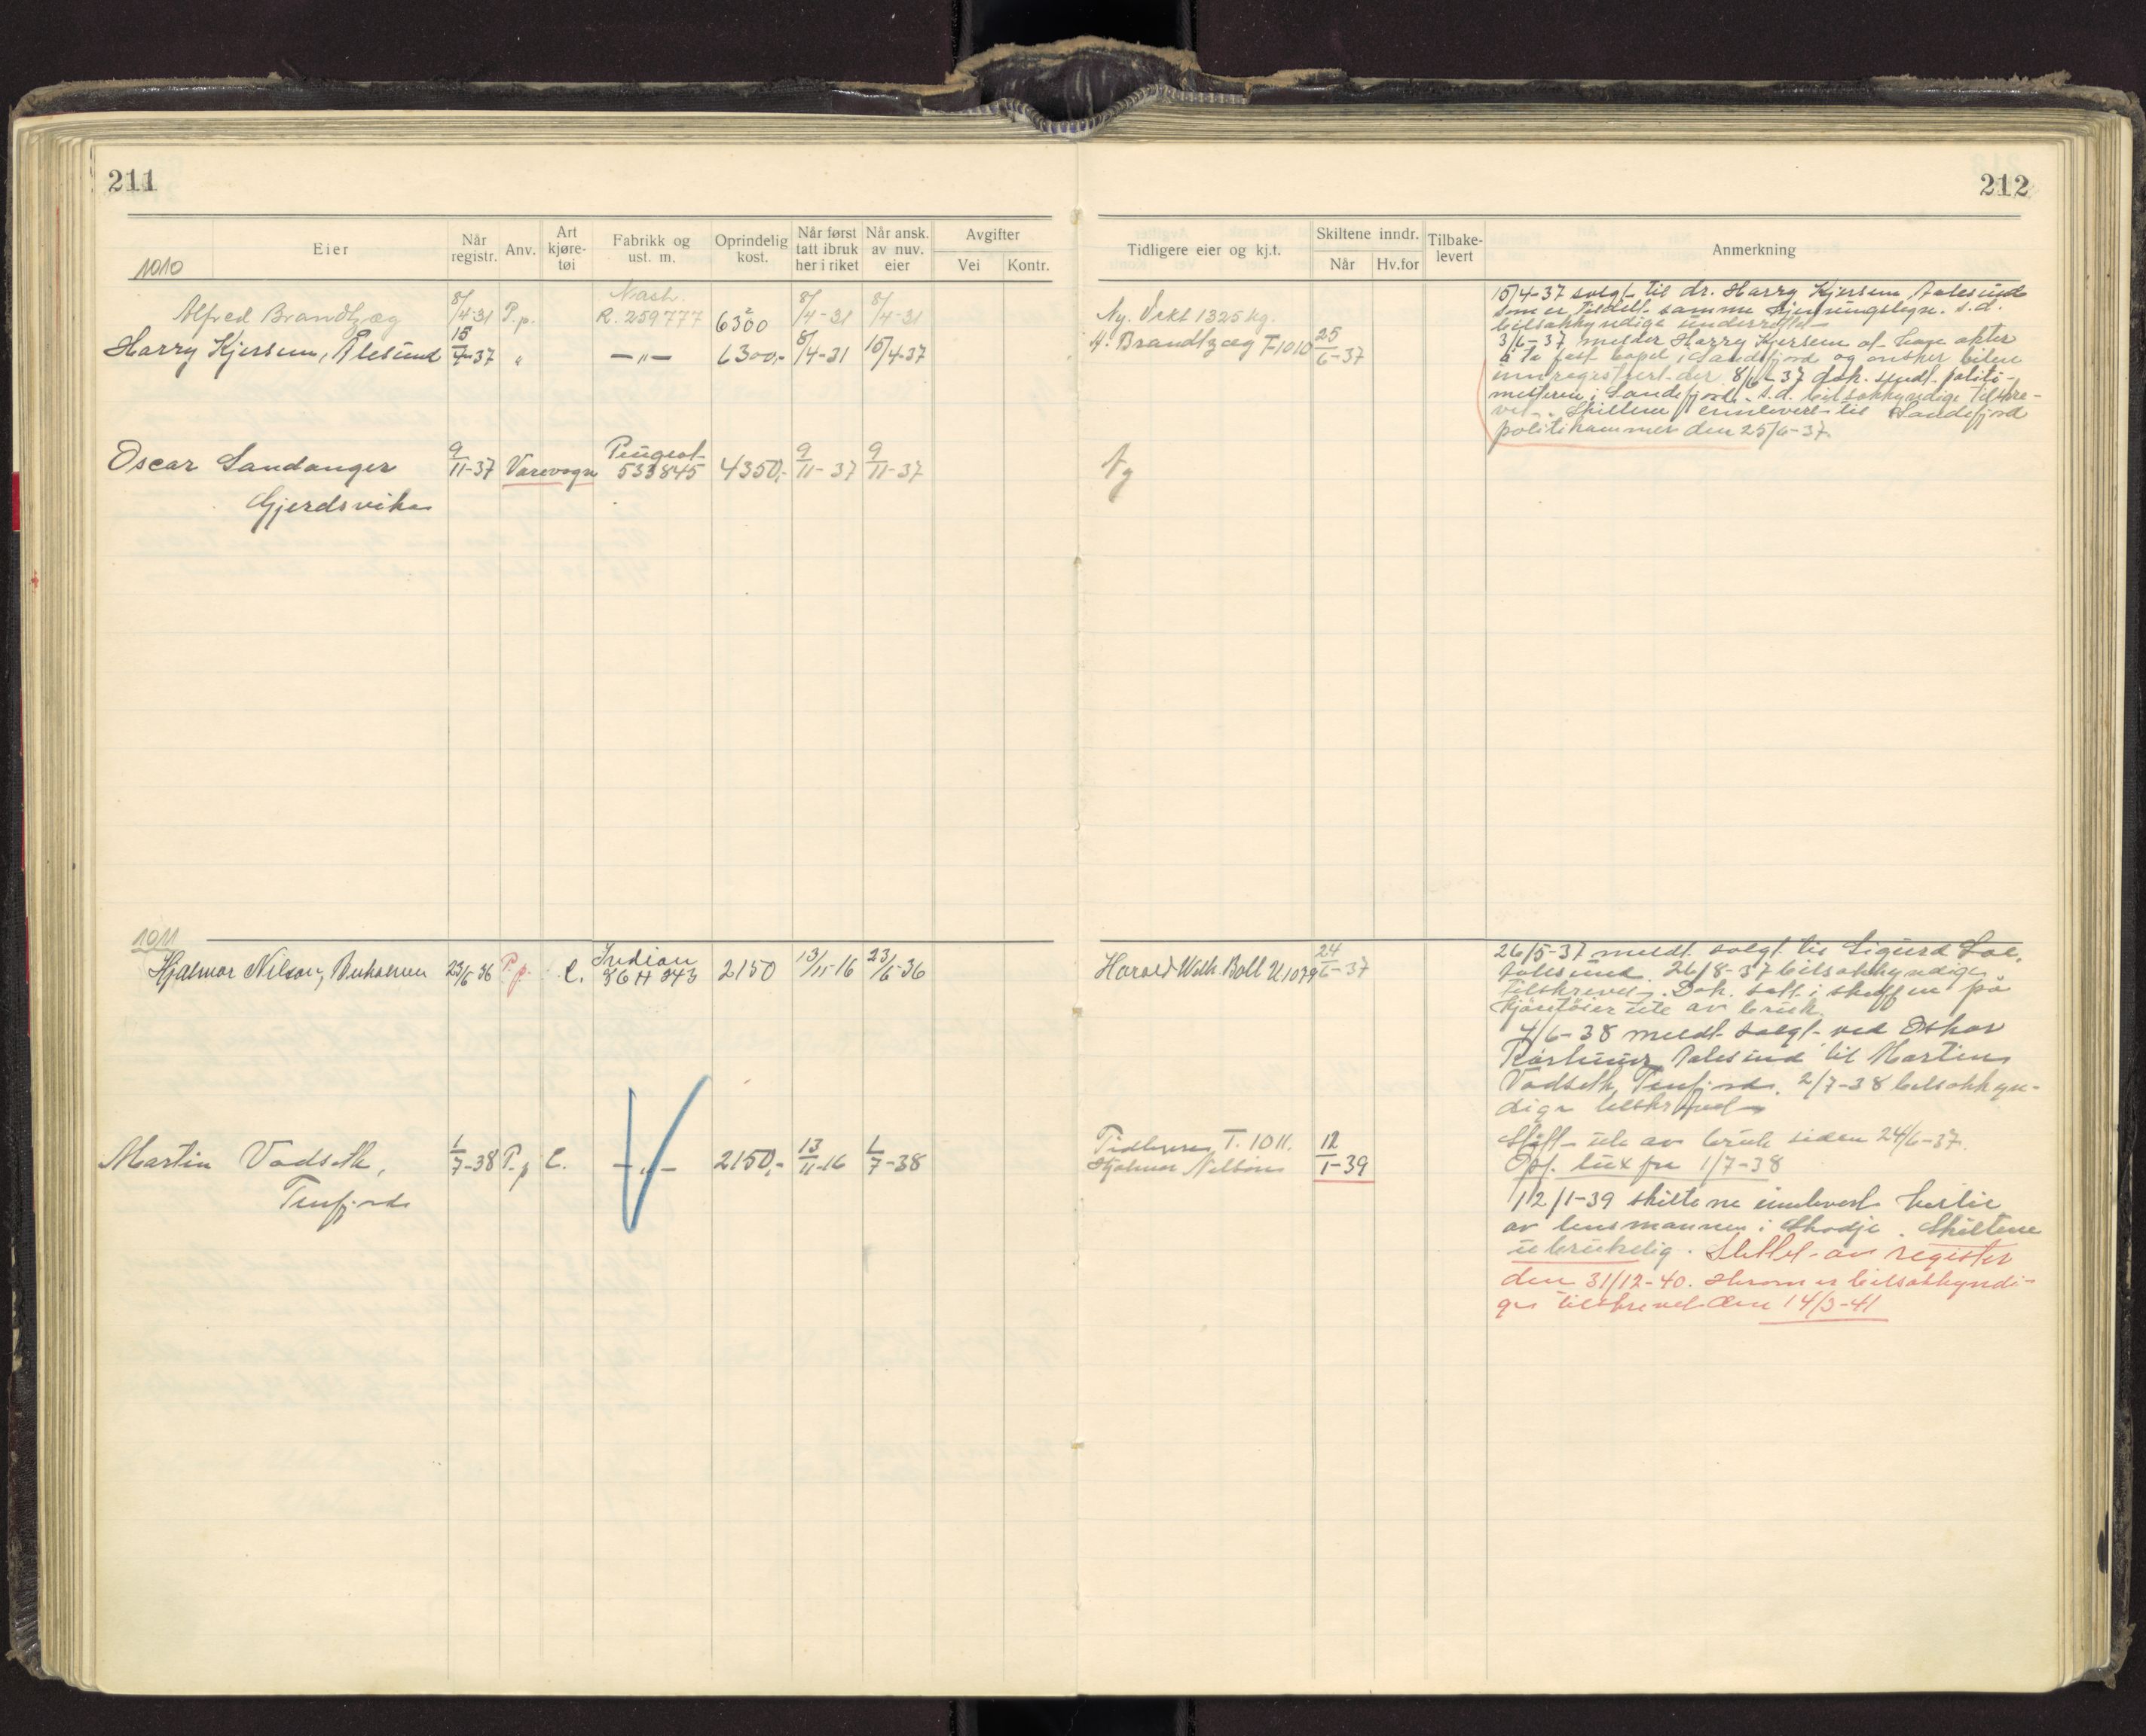 211
212
Eier
Når registr.
Anv.
Art kjøre-tøi
Fabrikk og ust. m.
Oprindelig kost.
Når først tatt ibruk her i riket
Når ansk. av nuv. eier
Avgifter
Vei
Kontr.
Tidligere eier og kj.t.
Skiltene inndr.
Når
Hv.for
Tilbake-levert
Anmerkning
1010
Alfred Brandtzæg 8/4-31 P.p. Nash. R. 259777 6300 8/4-31 8/4-31 Ny. Vekt 1325 kg.
Harry Kjersem, Ålesund 15/4-37 " —"— 6300,- 8/4-31 15/4-37 A. Brandtzæg T-1010 25/6-37
15/4-37 solgt til dr. Harry Kjersem, Aalesund
som er tildelt samme kjenningstegn. s.d.
bilsakkyndige underrettet
3/6-37 melder Harry Kjersem at han akter
å ta fast bopel i Sandefjord og ønsker bilen
innregistrert der 8/6-37 dok. sendt politi-
mesteren i Sandefjord. s.d. bilsakkyndige tilskre-
vet. Skiltene innlevert til Sandefjord
politikammer den 25/6-37.
Oscar Sandanger 9/11-37 Varevogn Peugeot 533845 4350,- 9/11-37 9/11-37 Ny
Gjerdsvika
1011
Hjalmar Nilson, Buholmen 23/6 36 P.p. C. Indian 86 H 243 2150 13/11-16 23/6-36 Harald Wilh. Boll U1079 24/6-37
26/5-37 meldt solgt til Sigurd
Aalesund. 26/8-37 bilsakkyndige
tilskrevet. Dok. satt i skuffen på
kjøretøier ute av bruk.
4/6-38 meldt solgt ved Oskar
Aalesund til Martin
Vadseth, Tenfjord. 2/7-38 bilsakkyn-
dige tilskrevet
Martin Vadseth, 1/7-38 P.p C. —"— 2150,- 13/11-16 1/7-38 Tidligere T. 1011. 12/1-39
Tenfjord Hjalmar Nilson
Stått ute av bruk siden 24/6-37.
Opf. lux fra 1/7-38
12/1-39 skiltene innlevert hertil
av lensmannen i Skodje. Skiltene
ubrukelig. Slettet av register
den 31/12-40. Hvorom er bilsakkyndi-
ge tilskrevet den 14/3-41